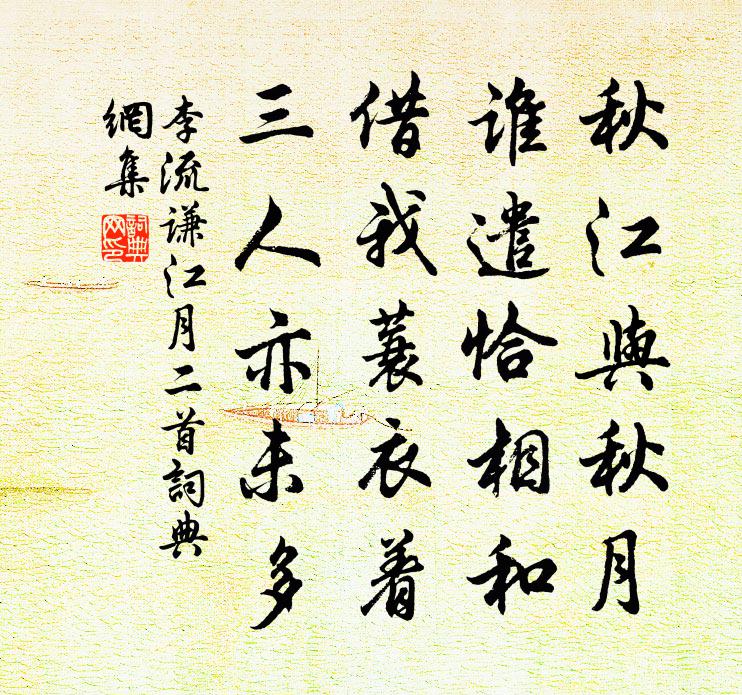 秋江與秋月
誰遣恰相和
借我蓑衣着
三人亦未多
李流謙江月二首詞典
網集
詞典
网印